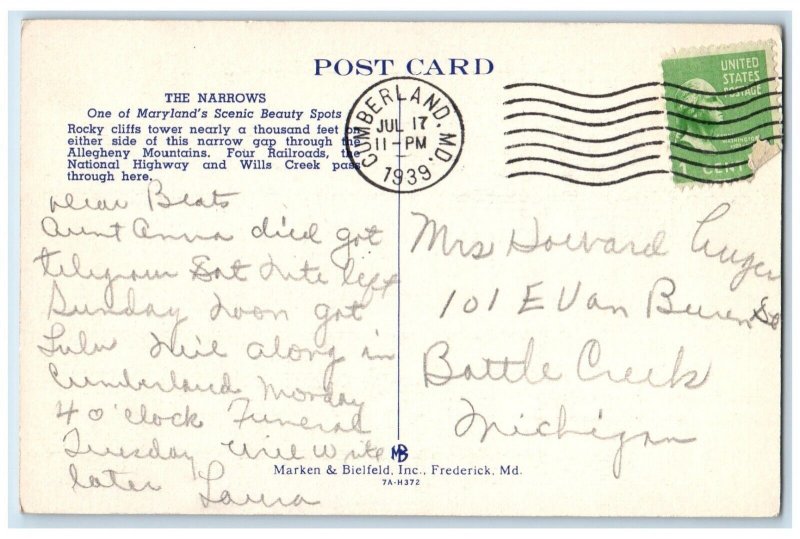 POST CARD
THE NARROWS
One of Maryland's Scenic Beauty Spots
Rocky cliffs tower nearly a thousand feet on
either side of this narrow gap through the
Allegheny Mountains. Four Railroads, the
National Highway and Wills Creek pass
through here.
CUMBERLAND, MD.
JUL 17
11-PM
1939
UNITED
STATES
POSTAGE
WASHINGTON
CENT
Dear Beats
Aunt Anna died got
telegram Sat Nite left
Sunday Noon got
Lulu
along in
Cumberland Monday
4 o'clock Funeral
Tuesday Will Write
later Laura
Mrs Howard
101 E Van Buren St
Battle Creek
Michigan
MB
Marken & Bielfeld, Inc., Frederick, Md.
7A-H372